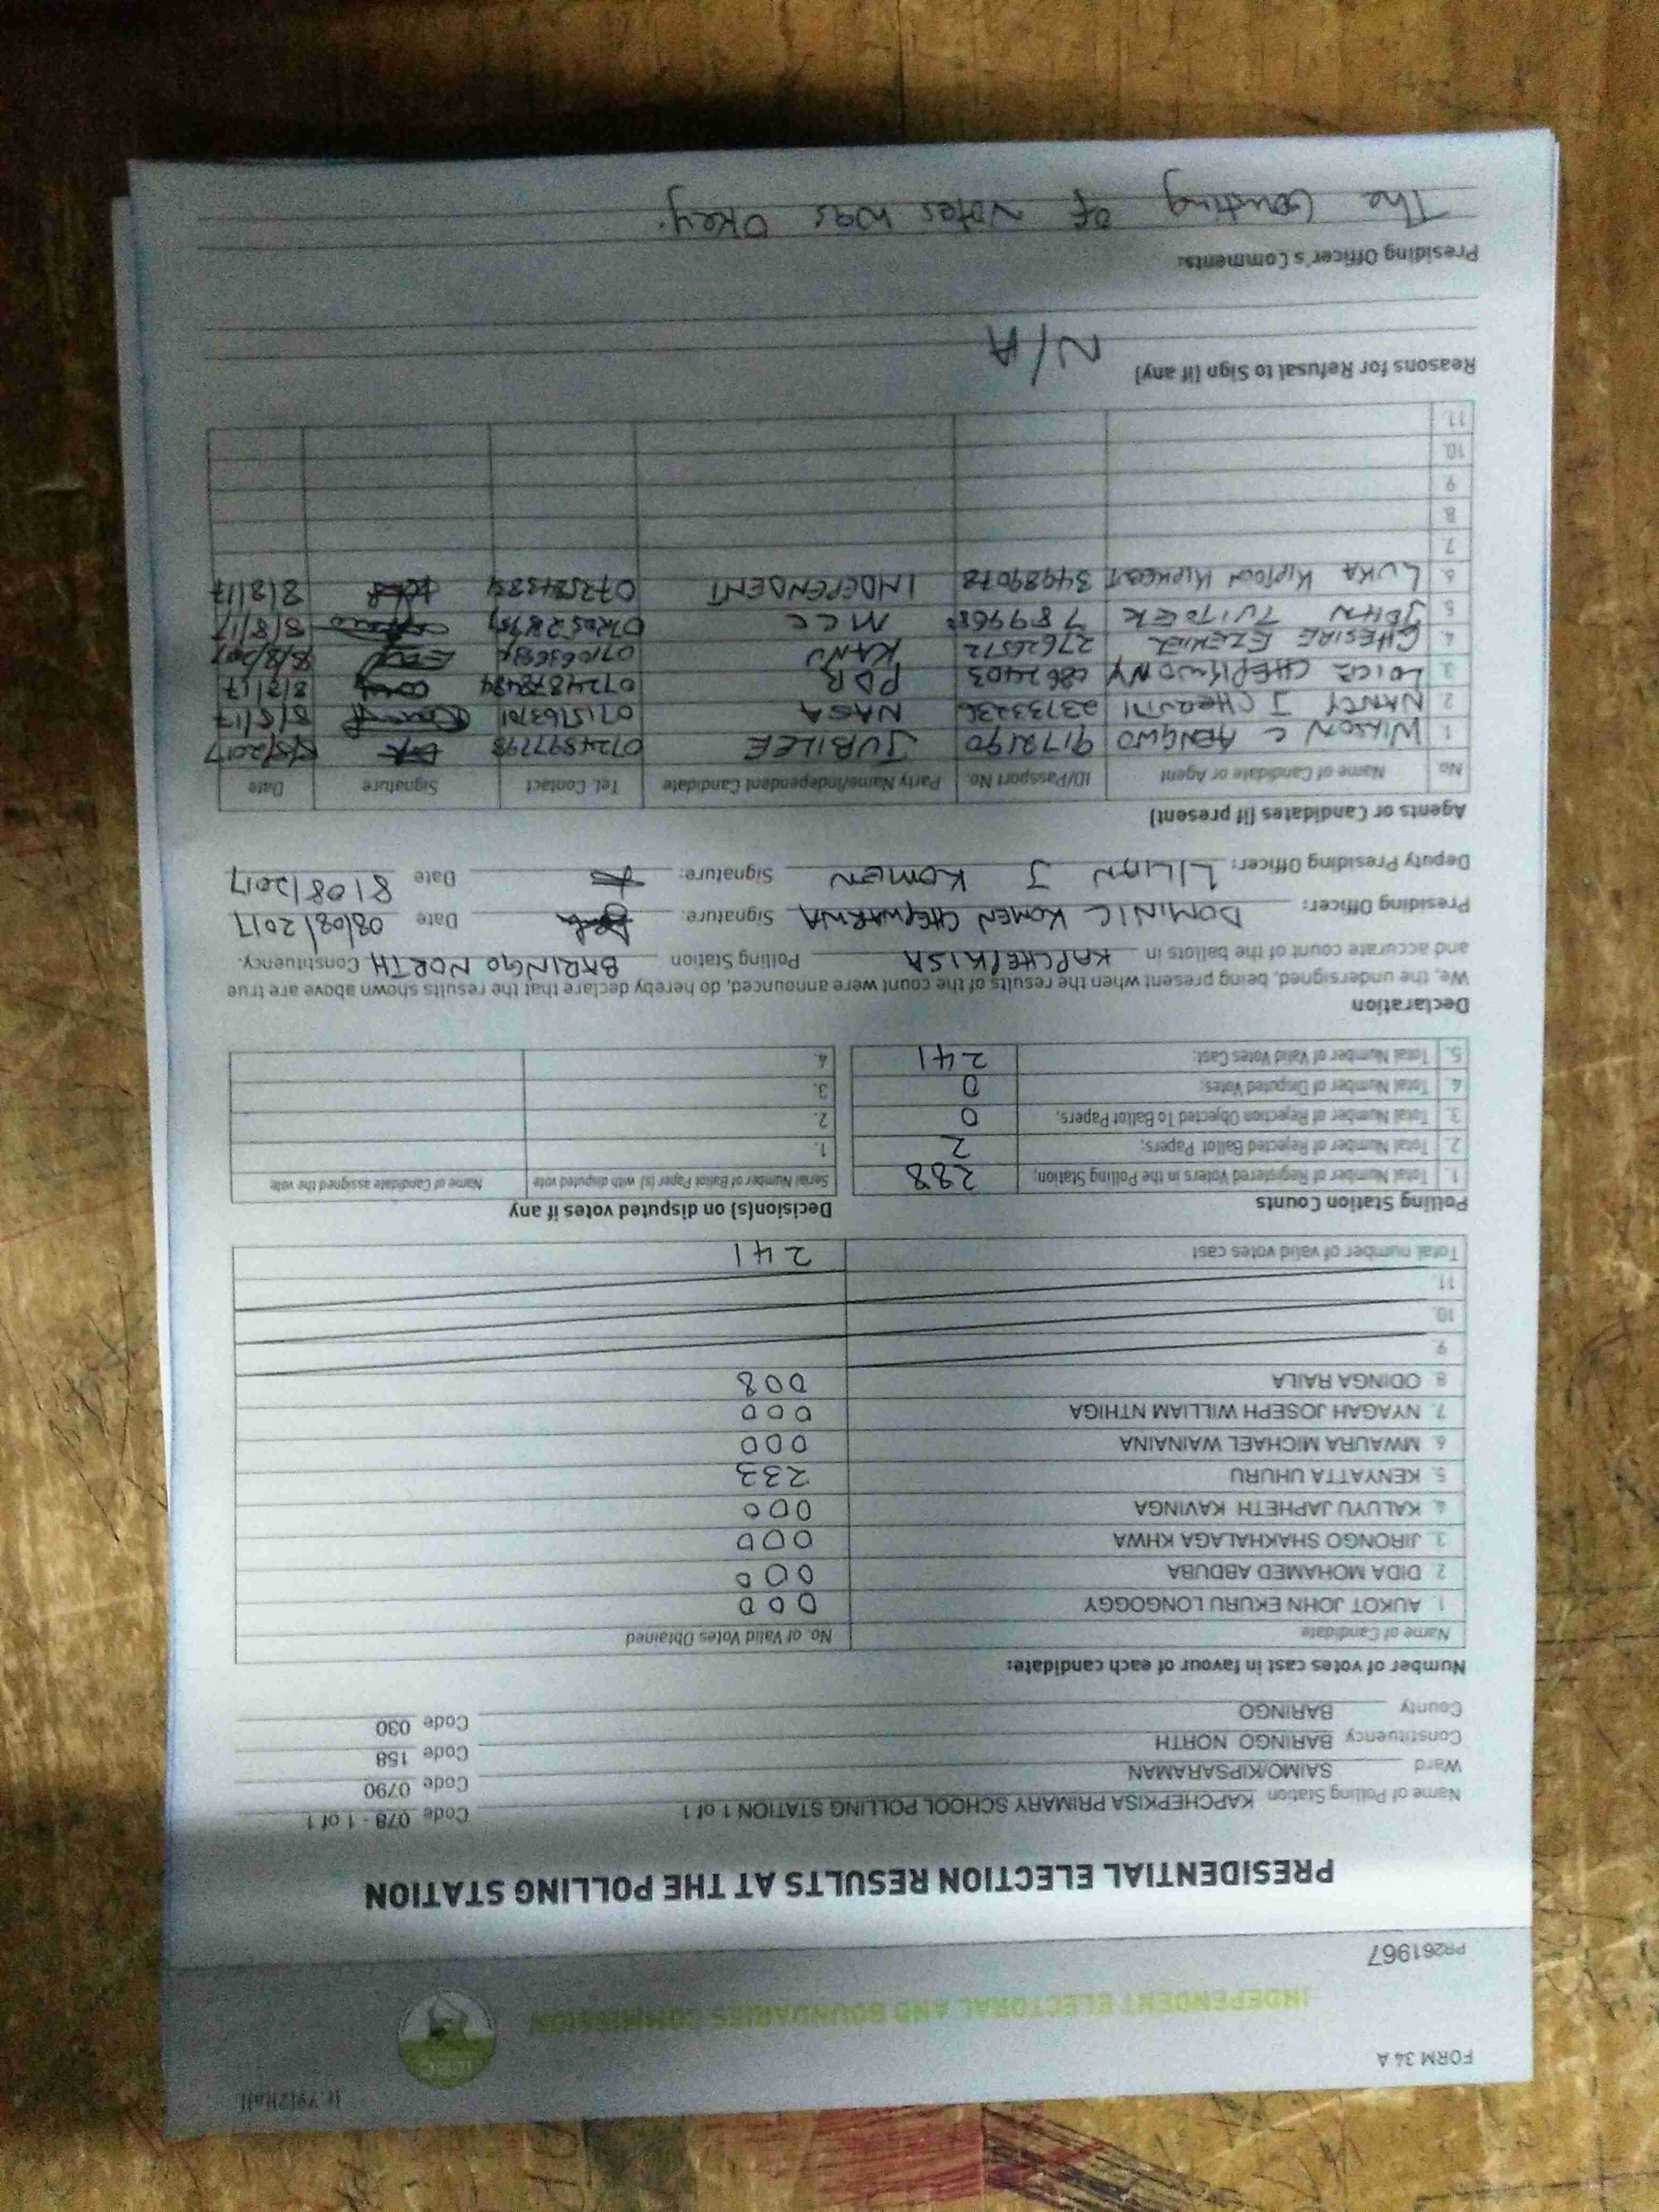 FORM 34 A
INDEPENDENT ELECTORAL AND BOUNDARIES COMMISSION
IEBC
PR261967
PRESIDENTIAL ELECTION RESULTS AT THE POLLING STATION
Name of Polling Station KAPCHEPKISA PRIMARY SCHOOL POLLING STATION 1 of 1 Code 078 - 1 of 1
Ward SAIMO/KIPSARAMAN Code 0790
Constituency BARINGO NORTH Code 158
County BARINGO Code 030
Number of votes cast in favour of each candidate:
Name of Candidate No. of Valid Votes Obtained
1. AUKOT JOHN EKURU LONGOGGY 000
2. DIDA MOHAMED ABDUBA 000
3. JIRONGO SHAKHALAGA KHWA 000
4. KALUYU JAPHETH KAVINGA 000
5. KENYATTA UHURU 233
6. MWAURA MICHAEL WAINAINA 000
7. NYAGAH JOSEPH WILLIAM NTHIGA 000
8. ODINGA RAILA 008
9.
10.
11.
Total number of valid votes cast 241
Polling Station Counts
1. Total Number of Registered Voters in the Polling Station; 288
2. Total Number of Rejected Ballot Papers; 2
3. Total Number of Rejection Objected To Ballot Papers; 0
4. Total Number of Disputed Votes; 0
5. Total Number of Valid Votes Cast; 241
Decision(s) on disputed votes if any
Serial Number of Ballot Paper (s) with disputed vote Name of Candidate assigned the vote
1.
2.
3.
4.
Declaration
We, the undersigned, being present when the results of the count were announced, do hereby declare that the results shown above are true
and accurate count of the ballots in KAPCHEPKISA Polling Station BARINGO NORTH Constituency.
Presiding Officer: DOMINIC KOMEN CHEPWARWA Signature: Date 08/08/2017
Deputy Presiding Officer: LILIAN J KOMEN Signature: Date 8/08/2017
Agents or Candidates (if present)
No Name of Candidate or Agent ID/Passport No. Party Name/Independent Candidate Tel. Contact Signature Date
1 WILSON C AENGWO 9172190 JUBILEE 8/8/2017
2 NANCY J 23733236 NASA 0715763701 8/8/17
3. LOICE CHEPKWONY PDR 0724878484 8/8/17
4. CHESIRE EZEKIEL 27626572 KANU 8/8/2017
5 JOHN TUITOEK MCC 8/8/17
6 LUKA KIPTOON 34989078 INDEPENDENT 8/8/17
7
8.
9
10.
11.
Reasons for Refusal to Sign (if any)
N/A
Presiding Officer's Comments:
The Counting of Votes was Okey.